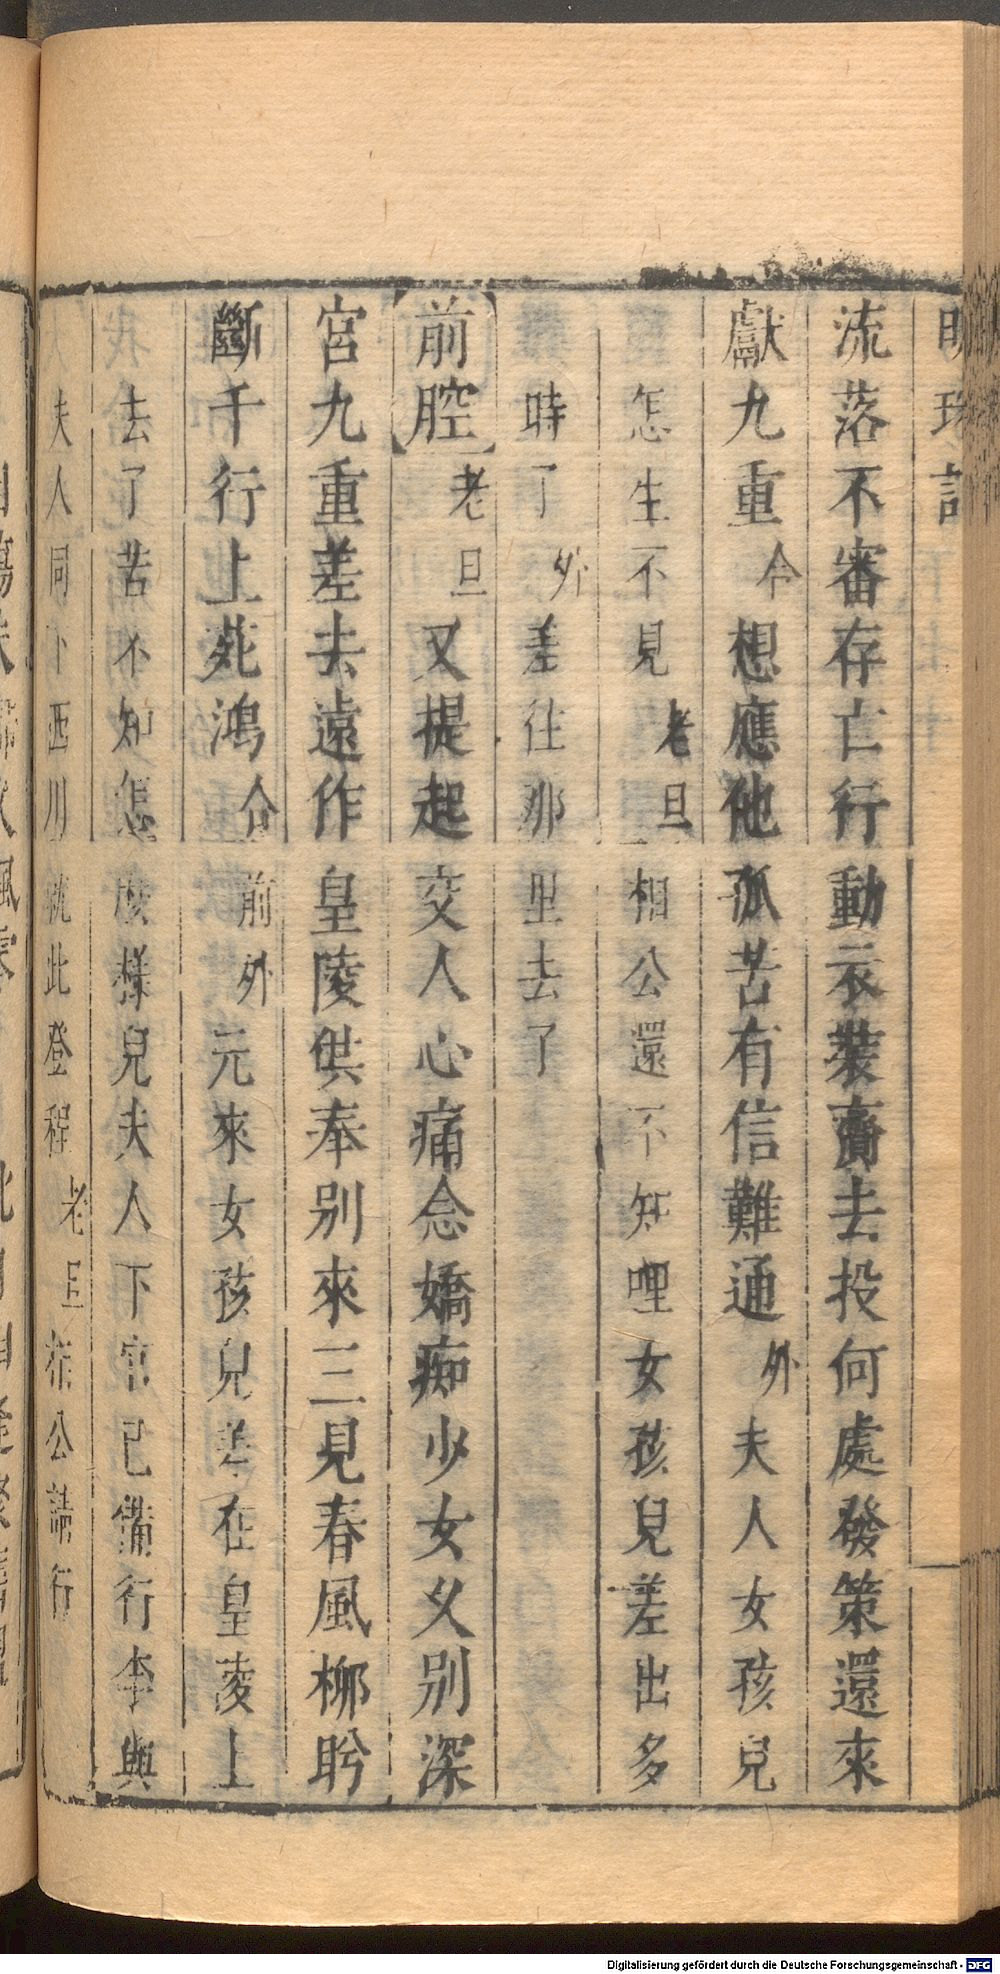 流落不審存亡行動衣裝賫去投何處發策還來
獻九重合想應他孤苦有信難通外夫人女孩兒
怎生不見老旦相公還不知哩女孩兒差出多
時了外差往那里去了
前腔老旦又提起交人心痛念嬌痴少女乂別深
宮九重差去遠作皇陵供奉別來三見春風柳盻
斷千行上苑鴻合前外元來女孩兒差在皇陵上
去了苦不知怎麽樣兒夫人下官已備行李與
夫人同下西川就此登程老旦相公請行
Digitalisierung gefördert durch die Deutsche Forschungsgemeinschaft - DFG